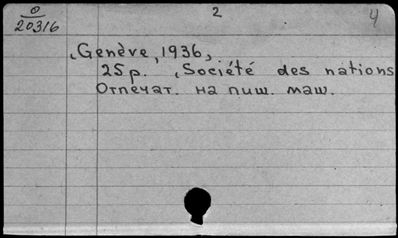 0
20316
2
4
Genève, 1936,
25 p. Société des nations
Отпечат. на пиш. маш.